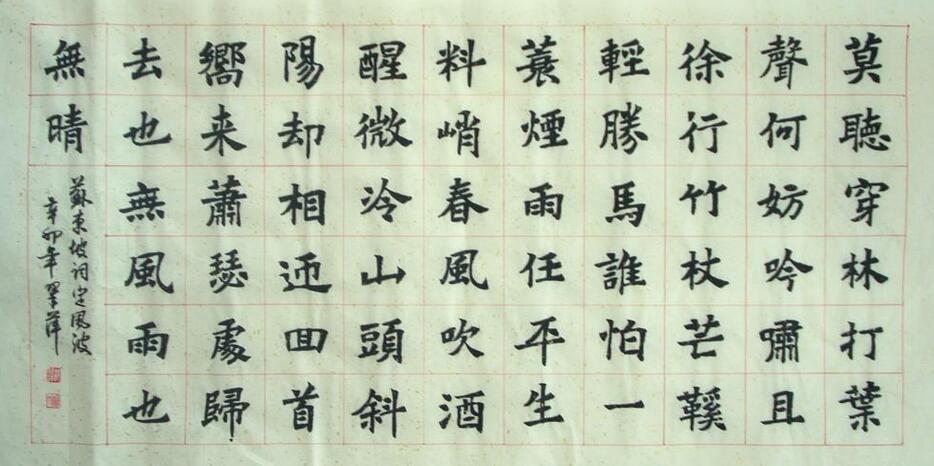 莫聽穿林打葉
聲何妨吟嘯且
徐行竹杖芒鞵
輕勝馬誰怕一
蓑煙雨任平生
料峭春風吹酒
醒微冷山頭斜
陽却相迎回首
嚮来蕭瑟處歸
去也無風雨也
無晴
蘇東坡词定風波
辛卯年翠萍